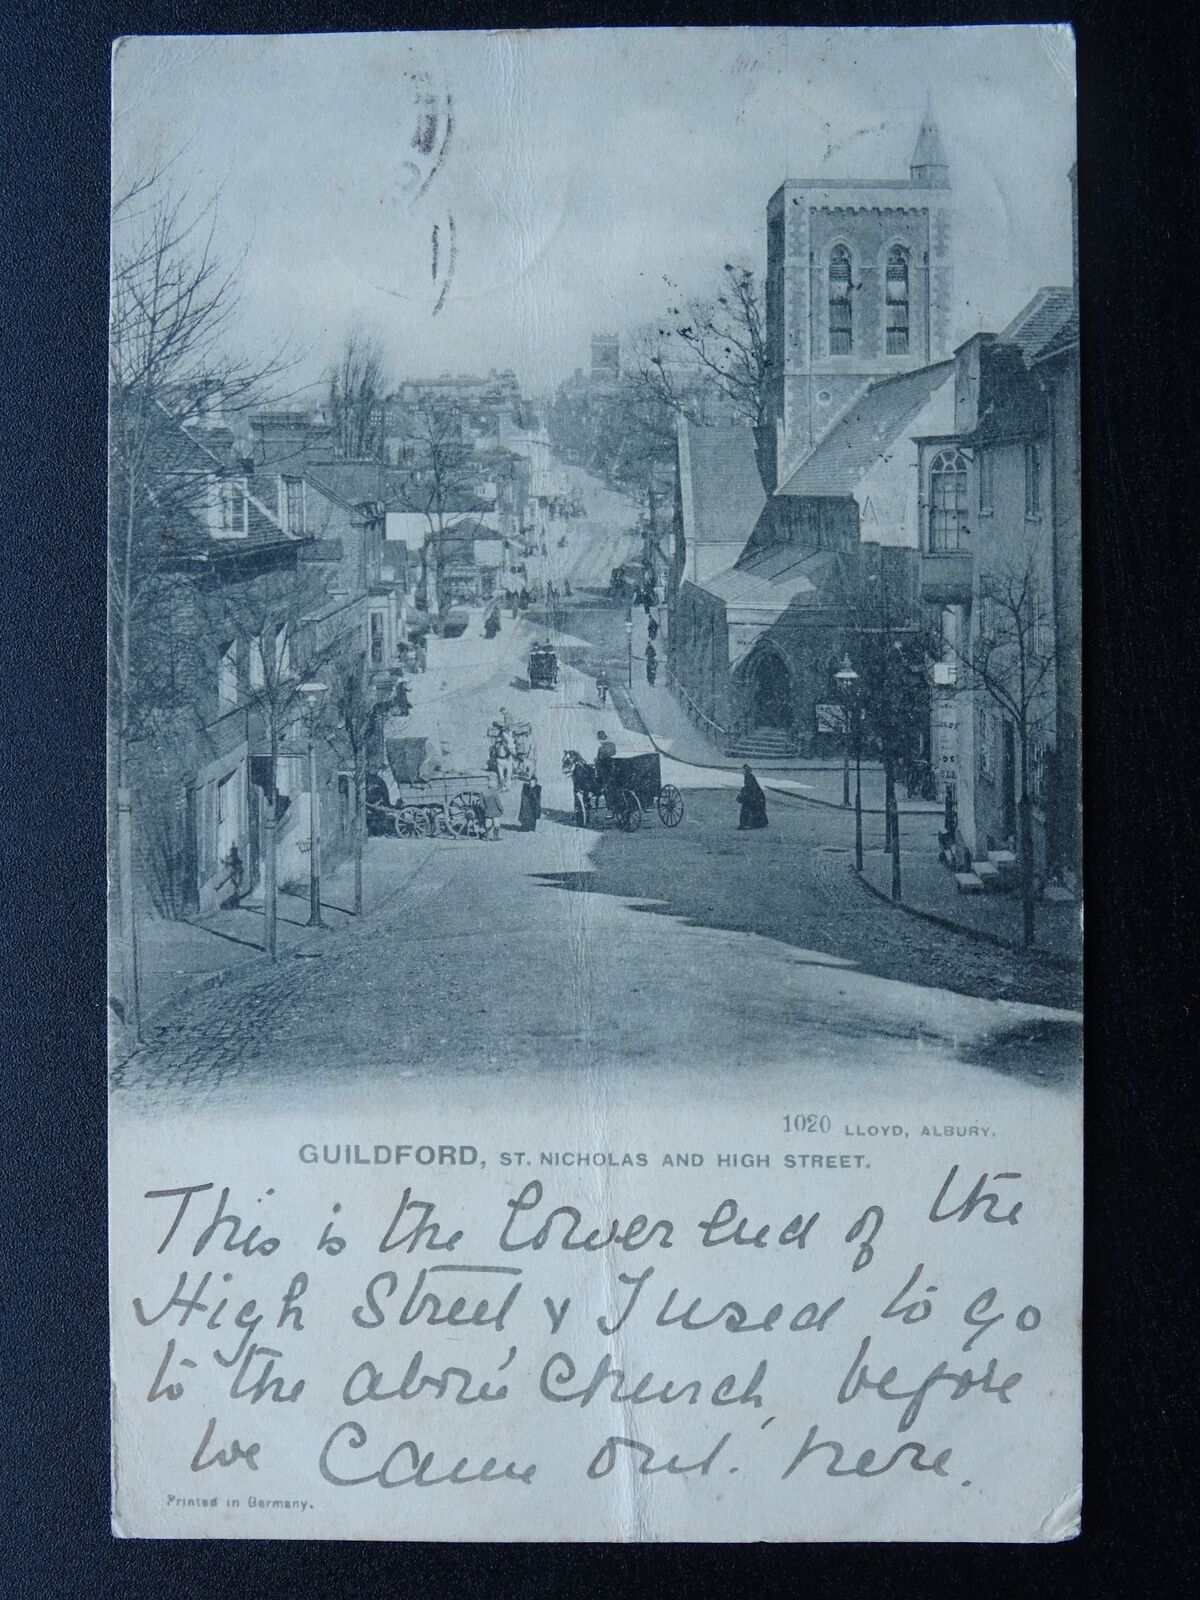 1020 LLOYD, ALBURY.
GUILDFORD, ST. NICHOLAS AND HIGH STREET.
This is the lower end of the
High Street & I used to go
to the above Church, before
we came out. here.
Printed in Germany.